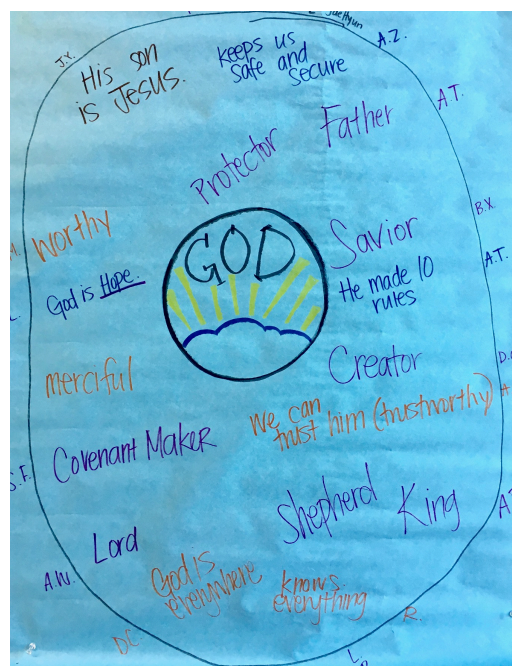 JaeHyun
J.Y.
His son
is Jesus.
keeps us
safe and
secure
A.Z.
Father
A.T.
Protector
worthy
GOD
Savior
B.X.
God is Hope.
He made 10
rules
A.T.
merciful
Creator
we can
trust him (trustworthy)
Covenant Maker
S.F.
Shepherd
King
Lord
A.W.
God is
everywhere
knows
everything
R.
D.C.
L.